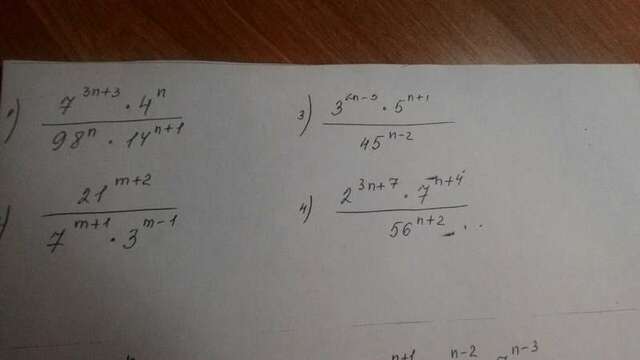 1) 7^{3n+3} · 4^n / 98^n · 14^{n+1}
3) 3^{2n-5} · 5^{n+1} / 45^{n-2}
21^{m+2} / 7^{m+1} · 3^{m-1}
4) 2^{3n+7} · 7^{n+4} / 56^{n+2}
n+1 n-2 7^{n-3}